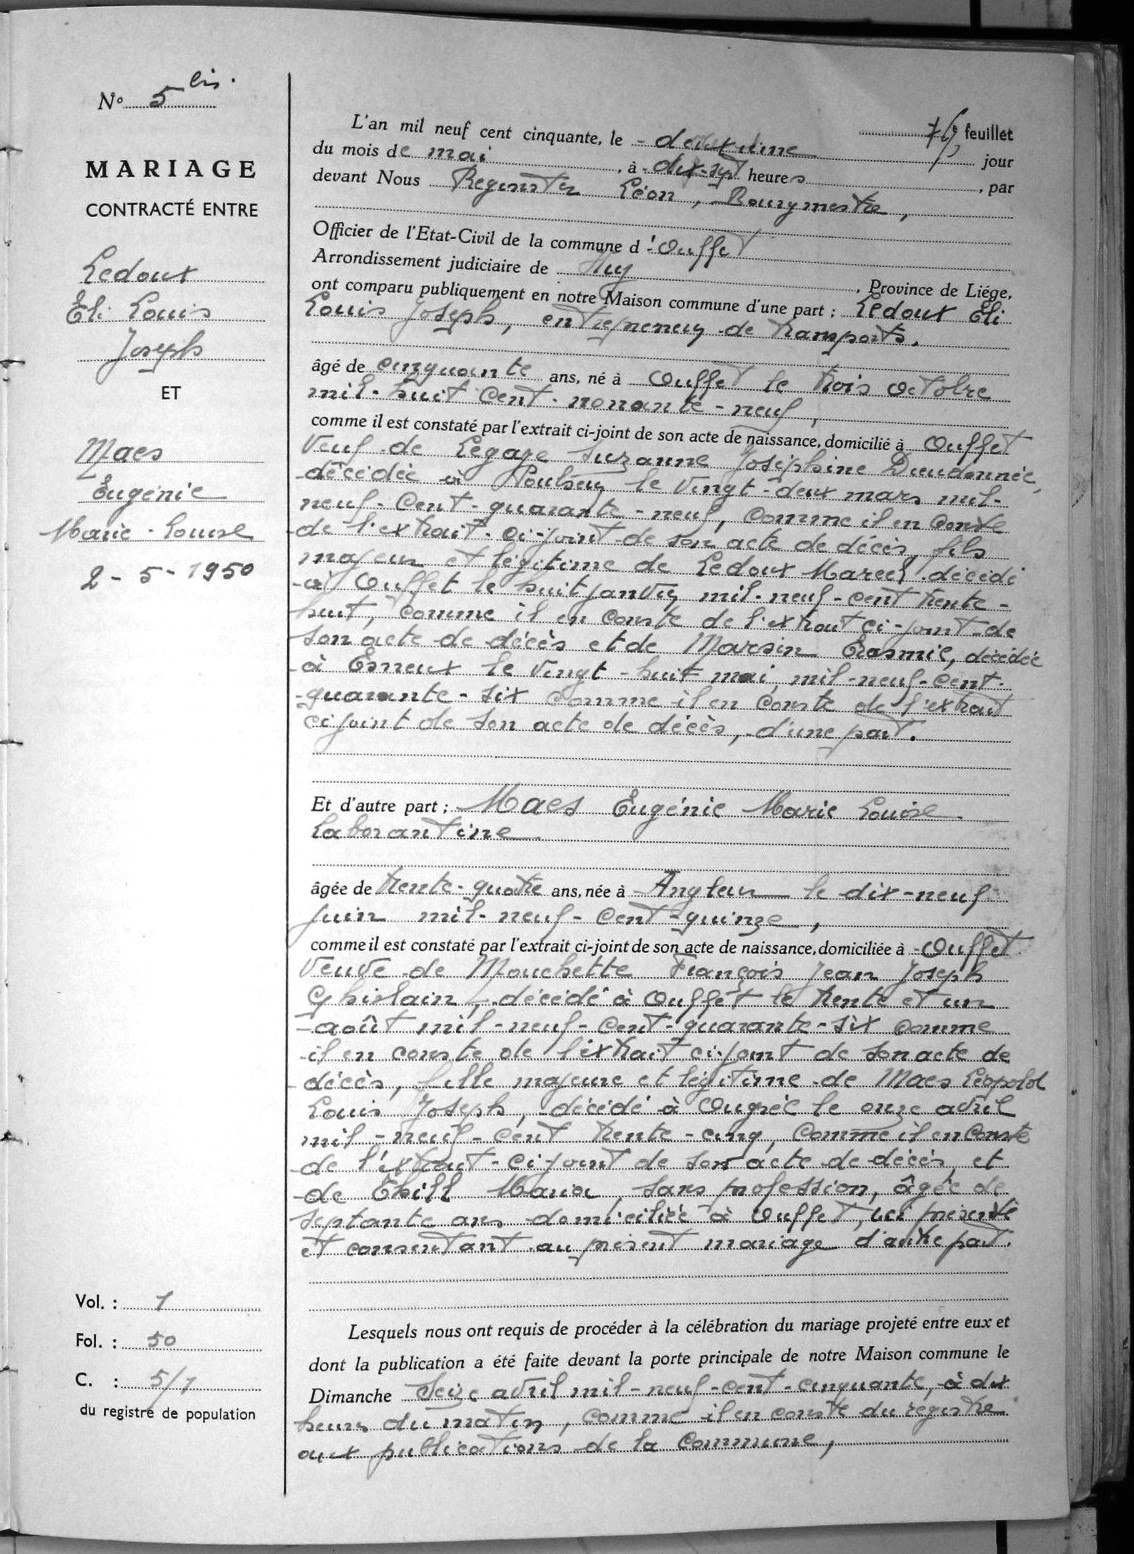 N° 5 bis.
MARIAGE
CONTRACTÉ ENTRE
Ledoux
Eli Louis
Joseph
ET
Maes
Eugénie
Marie-Louise
2-5-1950
Vol. : 1
Fol. : 50
C. : 5/1
du registre de population
feuillet
L'an mil neuf cent cinquante, le deuxième jour
du mois de mai, à dix-sept heures, par
devant Nous Léon, Bourgmestre,
Officier de l'Etat-Civil de la commune d'Ouffet
Arrondissement judiciaire de Huy, Province de Liége,
ont comparu publiquement en notre Maison commune d'une part : Ledoux Eli
Louis Joseph, entrepreneur de transports.
âgé de cinquante ans, né à Ouffet le trois octobre
mil-huit cent-nonante-neuf,
comme il est constaté par l'extrait ci-joint de son acte de naissance, domicilié à Ouffet
Veuf de Legaye Suzanne Joséphine Dieudonnée,
décédée à Poulseur le vingt-deux mars mil-
neuf-cent-quarante-neuf, comme il en conste
de l'extrait ci-joint de son acte de décès, fils
majeur et légitime de Ledoux Marcel décédé
à Ouffet le huit janvier mil-neuf-cent trente-
huit, comme il en conste de l'extrait ci-joint de
son acte de décès et de Marsin Erasmie, décédée
à Esneux le vingt-huit mai mil-neuf-cent-
quarante-six comme il en conste de l'extrait
ci joint de son acte de décès, d'une part.
Et d'autre part : Maes Eugénie Marie Louise
Laborantine
âgée de trente-quatre ans, née à Angleur le dix-neuf
juin mil-neuf-cent-quinze,
comme il est constaté par l'extrait ci-joint de son acte de naissance, domiciliée à Ouffet
Veuve de Mouchette François Jean Joseph
Ghislain, décédé à Ouffet le trente et un
août mil-neuf-cent-quarante-six comme
il en conste de l'extrait ci-joint de son acte de
décès, fille majeure et légitime de Maes Léopold
Louis Joseph, décédé à Ougrée le onze avril
mil-neuf-cent trente-cinq, comme il en conste
de l'extrait ci-joint de son acte de décès et
de Thill Maria, sans profession, âgée de
septante ans domiciliée à Ouffet, ici présente
et consentant au présent mariage d'autre part.
Lesquels nous ont requis de procéder à la célébration du mariage projeté entre eux et
dont la publication a été faite devant la porte principale de notre Maison commune le
Dimanche Seize avril mil-neuf-cent-cinquante, à dix
heures du matin, comme il en conste du registre
aux publications de la commune,